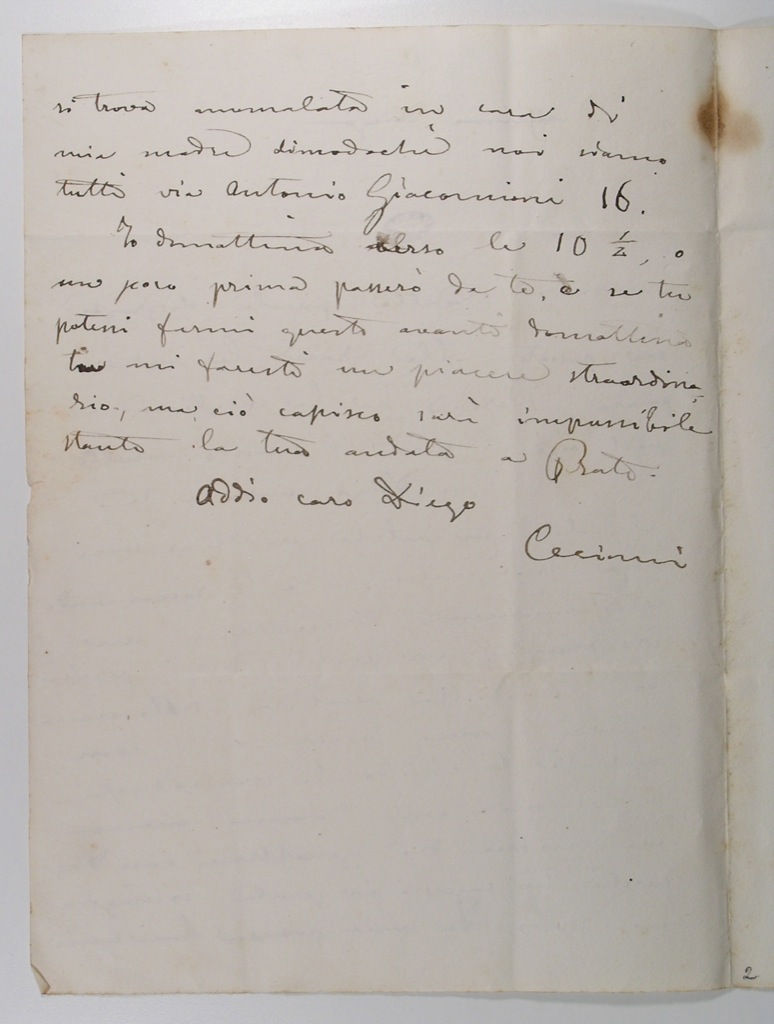 si trova ammalata in casa di
mia madre dimodochè noi siamo
tutti via Antonio Giacomini 16.
Io domattina verso le 10 ½, o
un poco prima passerò da te, e se tu
potessi farmi questo avanti domattina
tu mi faresti un piacere straordina
rio, ma ciò capisco sarà impossibile
stante la tua andata a Prato.
Addio caro Diego
Cecioni
2